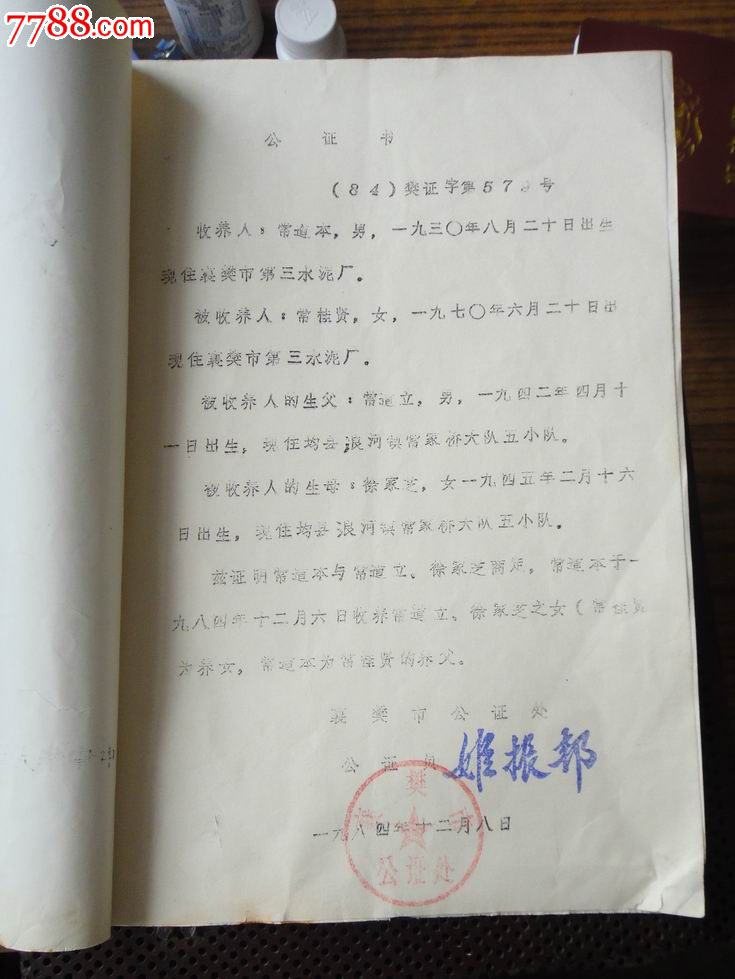 7788.com
公证书
(84)樊证字第57 号
收养人：常道本，男，一九三〇年八月二十日出生
现住襄樊市第三水泥厂。
被收养人：常桂贤，女，一九七〇年六月二十日出
现住襄樊市第三水泥厂。
被收养人的生父：常道立，男，一九四二年四月十
一日出生，现住均县浪河镇常家桥大队五小队。
被收养人的生母：徐家芝，女一九四五年二月十六
日出生，现住均县浪河镇常家桥大队五小队。
兹证明常道本与常道立、徐家芝商定，常道本于一
九八四年十二月六日收养常道立、徐家芝之女（常桂贤
为养女，常道本为常桂贤的养父。
襄樊市公证处
公证员 姬振郜
一九八四年十二月八日
樊市
公证处